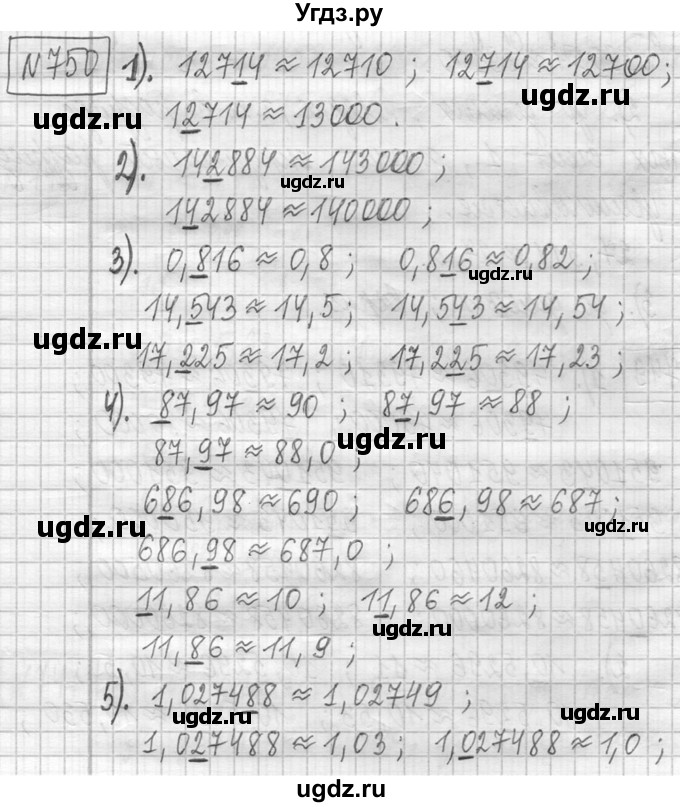 Угдз.ру
№750 1). 12714 ≈ 12710 ; 12714 ≈ 12700;
ugdz.ru ugdz.ru
12714 ≈ 13000 .
2). 142884 ≈ 143000 ;
ugdz.ru
142884 ≈ 140000 ;
3). 0,816 ≈ 0,8 ; 0,816 ≈ 0,82 ;
ugdz.ru
14,543 ≈ 14,5 ; 14,543 ≈ 14,54 ;
ugdz.ru
17,225 ≈ 17,2 ; 17,225 ≈ 17,23 ;
4). 87,97 ≈ 90 ; 87,97 ≈ 88 ;
ugdz.ru
87,97 ≈ 88,0 ;
686,98 ≈ 690 ; 686,98 ≈ 687 ;
ugdz.ru
686,98 ≈ 687,0 ;
11,86 ≈ 10 ; 11,86 ≈ 12 ;
ugdz.ru
11,86 ≈ 11,9 ;
5). 1,027488 ≈ 1,02749 ;
ugdz.ru
1,027488 ≈ 1,03 ; 1,027488 ≈ 1,0 ;
ugdz.ru ugdz.ru